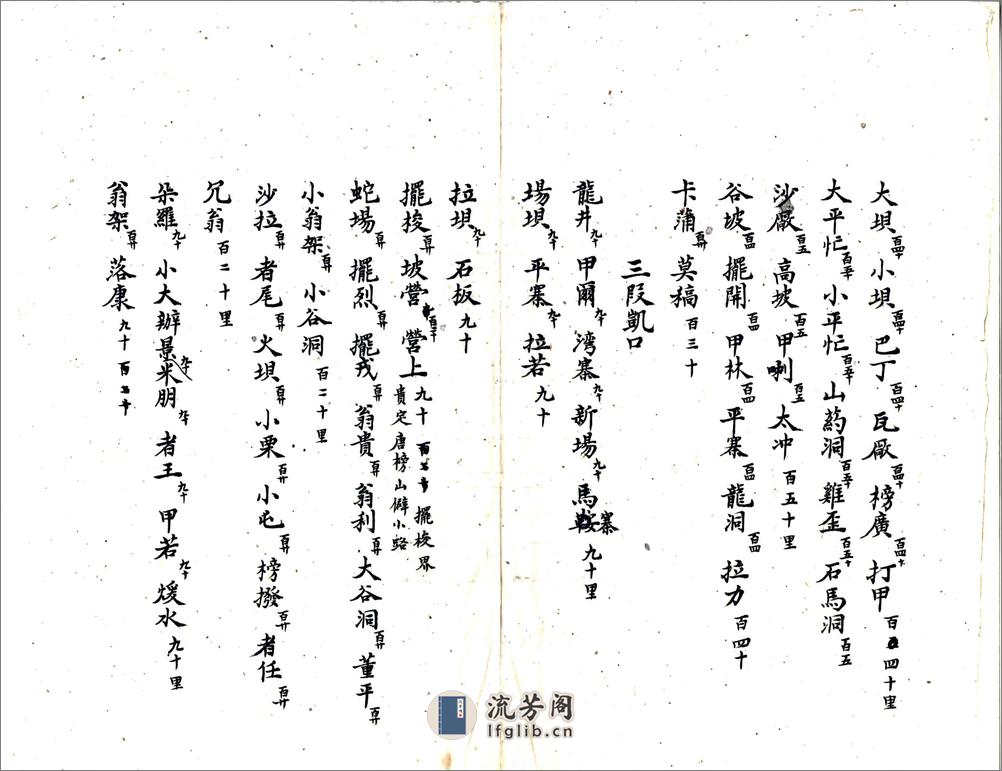 大坝 百四十 小坝 百四十 巴丁 百四十 瓦厰 百四十 榜廣 百四十 打甲 百四十里
大平忙 百五十 小平忙 百五十 山药洞 百五十 雞歪 百五十 石馬洞 百五
沙厰 百五 高坡 百五 甲喇 百五 太冲 百五十里
谷坡 百四 擺開 百四 甲林 百四 平寨 百四 龍洞 百四 拉力 百四十
卡蒲 百卅 莫稿 百三十
三段凱口
龍井 九十 甲爾 九十 湾寨 九十 新場 九十 馬鞍寨 九十里
場坝 九十 平寨 九十 拉若 九十
拉坝 石板 九十
擺梭 百卅 坡營 百二十 營上 九十 擺梭界 貴定唐榜山僻小路
蛇場 百卅 擺烈 百卅 擺戎 百卅 翁貴 百卅 翁利 百卅 大谷洞 百卅 董平 百卅
小翁架 百卅 小谷洞 百二十里
沙拉 百卅 者尾 百卅 火坝 百卅 小栗 小屯 百卅 榜撥 百卅 者任 百卅
冗翁 百二十里
朵羅 九十 小大辦景 九十 米朋 九十 者王 九十 甲若 九十 煖水 九十里
翁架 百卅 落康 九十
流芳阁
lfglib.cn